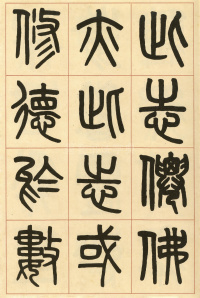 此志僊佛
亦此志或
修德於數